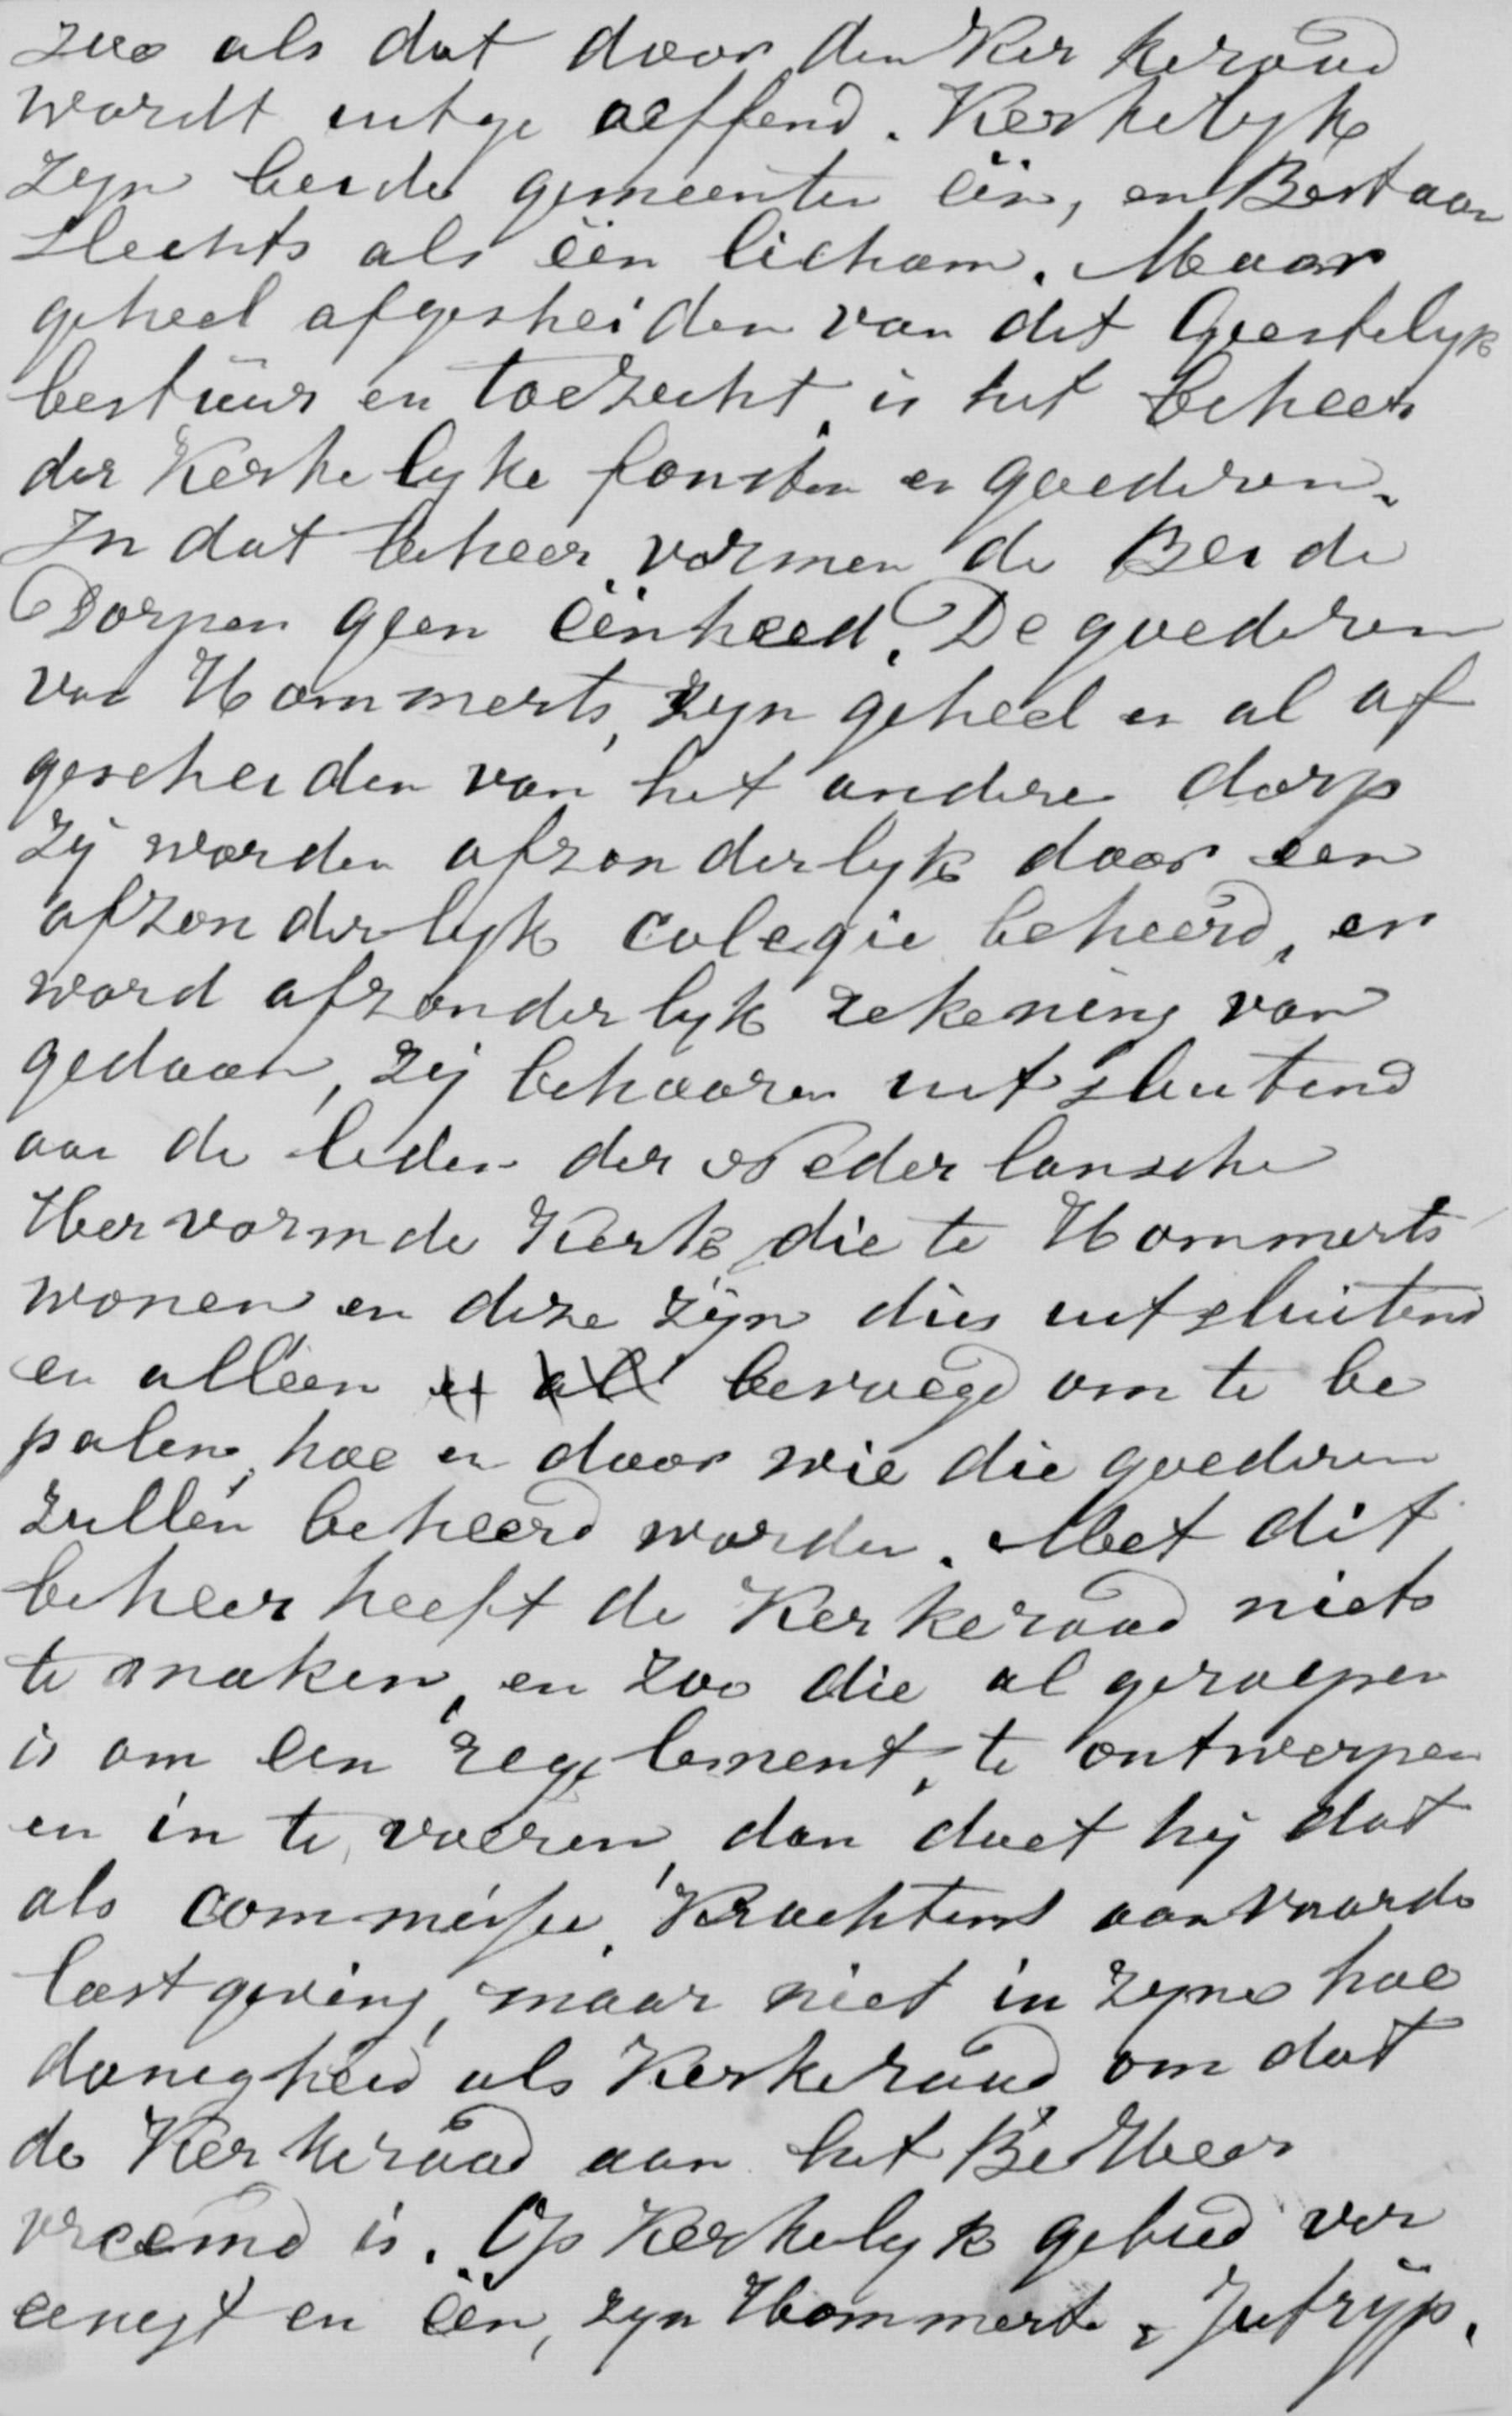 zoo als dat door den Ker keraad
wordt uitge oeffend. Kerkelyk
zyn beide gemeenten één, en Bestaan
slechts als één licham. Maar
geheel afgesheiden van dit Geestelyk
bestuur en toezicht, is het beheer
der Kerkelyke fonsten en goederen.
In dat beheer, vormen de Beide
Dorpen geen éénheed. De goederen
van Hommerts, zyn geheel en al af
gescheiden van het andere dorp
Zij worden afzonderlyk door een
afzonderlyk colegie beheerd, en
word afzonderlyk rekening van
gedaan, zij behooren uitsluitend
aan de leden der Nederlansche
Hervormde Kerk die te Hommerts
wonen en deze zijn dus uitsluitend
en alléen en al bevoegd om te be
palen, hoe en door wie die goederen
zullen beheerd worden. Met dit
beheer heeft de Kerkeraad niets
te maken, en zoo die al geroepen
is om een regelement, te ontwerpen
en in te voeren, dan doet hij dat
als commissie, Krachtens aanvaarde
lastgeving, maar niet in zyne hoe
danigheid als Kerkeraad om dat
de Kerkeraad aan het BeHeer
vreemd is. Op Kerkelyk gebied ver
eenegt en één, zyn Hommerts, Jutrijp.